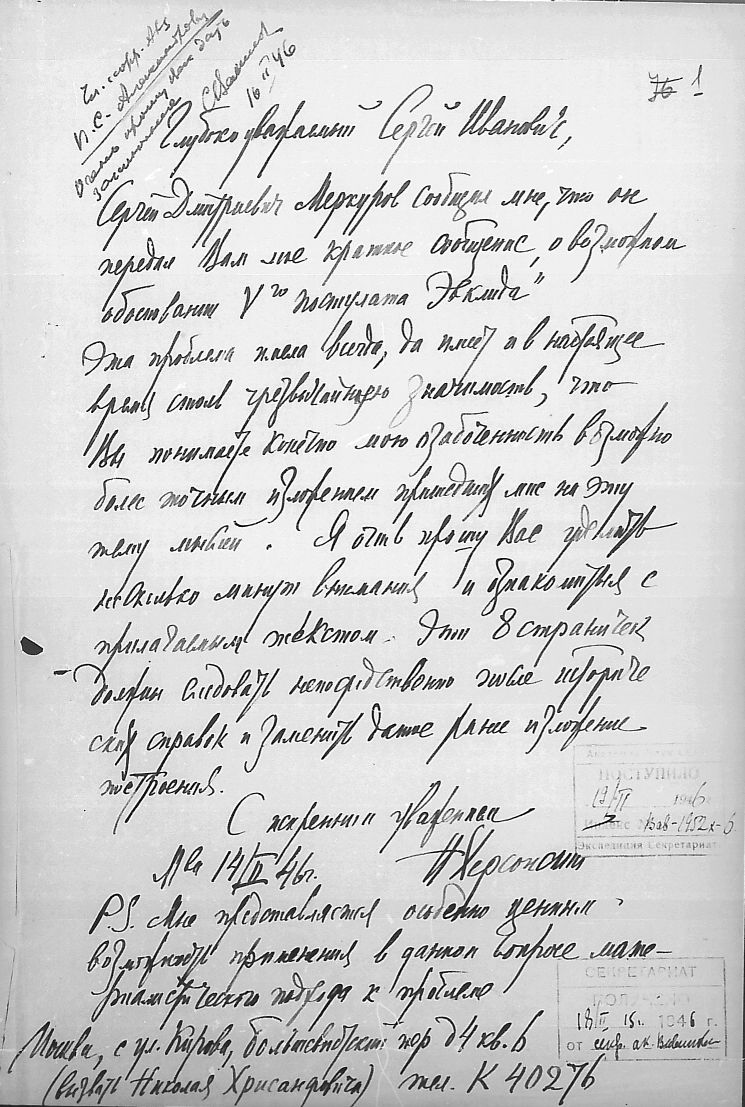 Чл. корр. АН
П. С. Александрову
Очень прошу Вас дать
заключение
СВавилов
16 II 46
76 1
Глубокоуважаемый Сергей Иванович,
Сергей Дмитриевич Меркуров сообщил мне, что он
передал Вам мое краткое сообщение „о возможном
обосновании V го постулата Эвклида"
Эта проблема имела всегда, да имеет и в настоящее
время столь чрезвычайную значимость, что
Вы понимаете конечно мою озабоченность возможно
более точным изложением пришедших мне на эту
тему мыслей. Я очень прошу Вас уделить
несколько минут внимания и ознакомиться с
прилагаемым текстом. Эти 8 страничек
должны следовать непосредственно после историче
ских справок и заменить данное ранее изложение
построения.
С искренним уважением
Мва 14/II 46г.
P.S. Мне представляется особенно ценным
возможность применения в данном вопросе мате-
риалистического подхода к проблеме
Москва, с ул. Кирова, Большевистский пер д 4 кв. 6
(вызвать Николая Хрисанфовича) тел. К 40276
ПОСТУПИЛО
19/II 1946
Индекс Вав-1952х-6
Экспедиция Секретариата
СЕКРЕТАРИАТ
ПОЛУЧЕНО
18/II 1946 г.
от секр. ак. Вавилова